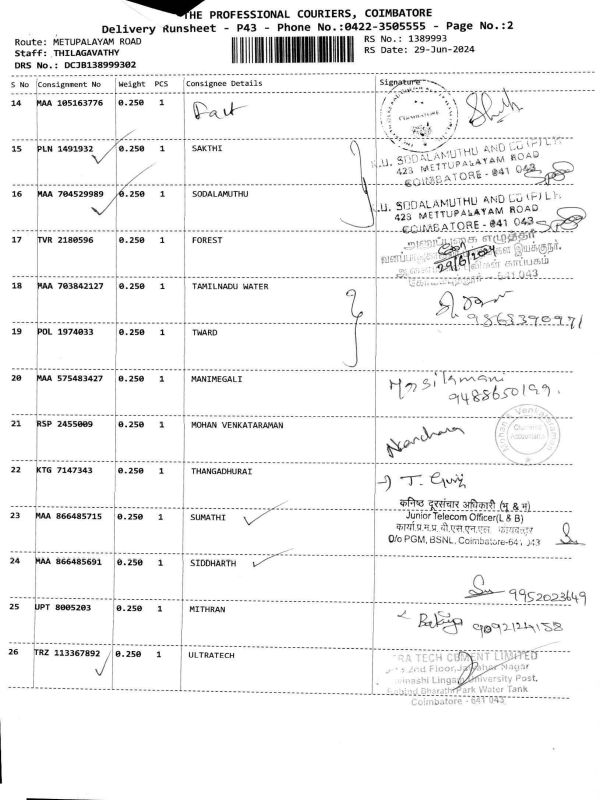 THE PROFESSIONAL COURIERS, COIMBATORE
Delivery Runsheet - P43 - Phone No.:0422-3505555 - Page No.:2
Route: METUPALAYAM ROAD
Staff: THILAGAVATHY
DRS No.: DCJB138999302
RS No.: 1389993
RS Date: 29-Jun-2024
S No Consignment No Weight PCS Consignee Details Signature
14 MAA 105163776 0.250 1
COIMBATORE
15 PLN 1491932 0.250 1 SAKTHI
K.U. SODALAMUTHU AND CO (P) LTD
423 METTUPALAYAM ROAD
COIMBATORE - 641 043
16 MAA 704529989 0.250 1 SODALAMUTHU
K.U. SODALAMUTHU AND CO (P) LTD
423 METTUPALAYAM ROAD
COIMBATORE - 641 043
17 TVR 2180596 0.250 1 FOREST
29/6/2024
641 043
18 MAA 703842127 0.250 1 TAMILNADU WATER
19 POL 1974033 0.250 1 TWARD
20 MAA 575483427 0.250 1 MANIMEGALI
9488650199.
21 RSP 2455009 0.250 1 MOHAN VENKATARAMAN
Mohan Venkataraman
Chartered
Accountants
22 KTG 7147343 0.250 1 THANGADHURAI
कनिष्ठ दूरसंचार अधिकारी (भू & भ)
23 MAA 866485715 0.250 1 SUMATHI
Junior Telecom Officer(L & B)
O/o PGM, BSNL, Coimbatore-641 043
24 MAA 866485691 0.250 1 SIDDHARTH
9952023649
25 UPT 8005203 0.250 1 MITHRAN
9092124158
26 TRZ 113367892 0.250 1 ULTRATECH
TRA TECH CEMENT LIMITED
2nd Floor, Jawahar Nagar
Avinashi Lingam University Post,
Bharathi Park Water Tank
Coimbatore - 641 043